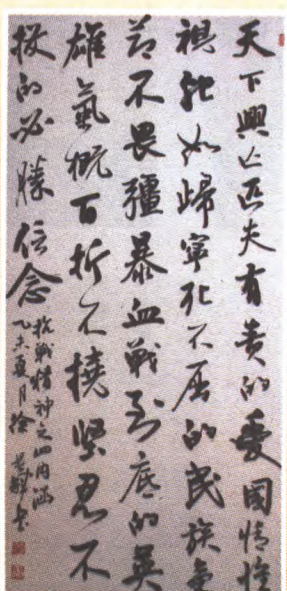 天下興亡匹夫有責的愛國情懷
視死如歸寧死不屈的民族氣
節不畏疆暴血戰到底的英
雄氣概百折不撓堅忍不
拔的必勝信念
抗戰精神之四内涵
乙未夏月徐 書